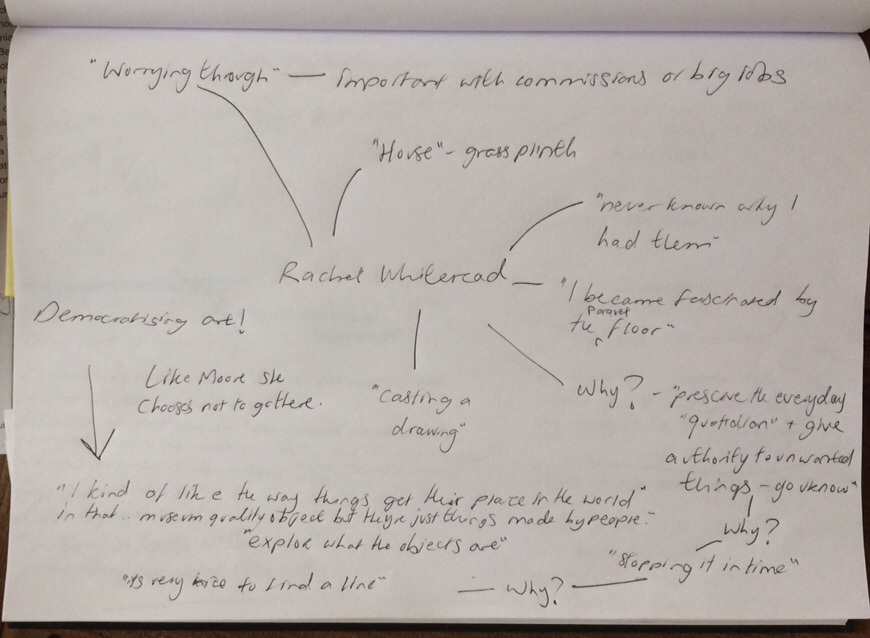 "Worrying though" — important with commissions or big jobs
"House" - grass plinth
"never known why I
had them"
Rachel Whiteread
"I became fascinated by
Parquet
the floor"
Democratising art!
Like Moore she
chooses not to go there.
"casting a
drawing"
Why? - "preserve the everyday
"quotidian" + give
authority to unwanted
things - you know"
"I kind of like the way things get their place in the world"
in that .. museum quality object but they're just things made by people."
Why?
"explor what the objects are"
"stopping it in time"
"its very nice to find a line"
— Why? —